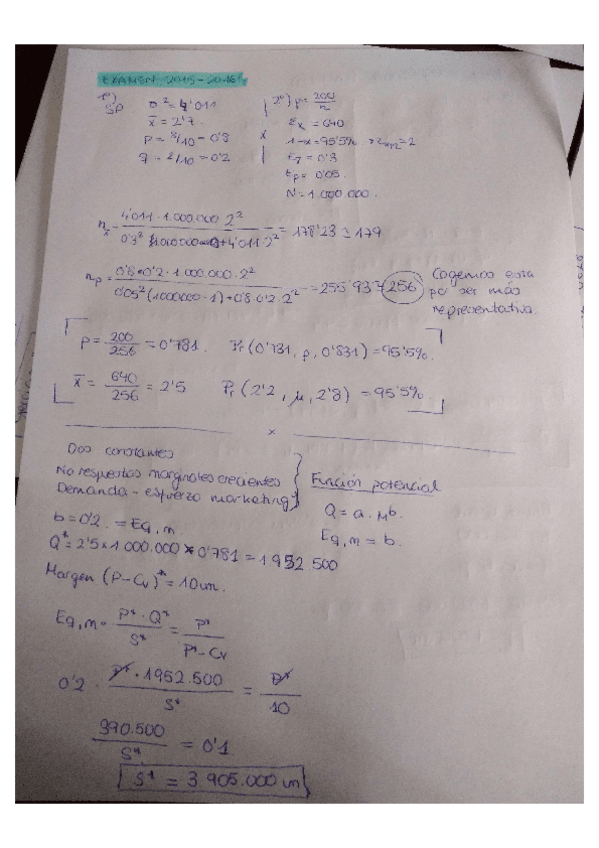 EXAMEN 2015-2016
1º) SP σ² = 4'011
x̄ = 2'7
P = 8/10 = 0'8
q = 2/10 = 0'2
x
2º) p = 200/n
Σx = 640
1-α = 95'5%
= 2
= 0'3
εp = 0'05
N = 1.000.000.
nx̄ = 4'011 · 1.000.000 · 2² / 0'3² + 4'011 · 2² = 178'23 ≃ 179
np = 0'8 · 0'2 · 1.000.000 · 2² / 0'05² (1000000 - 1) + 0'8 · 0'2 · 2² = 255'93 ≃ 256
Cogemos esta
por ser más
representativa.
p = 200/256 = 0'781. Pr (0'731, p, 0'831) = 95'5%.
x̄ = 640/256 = 2'5 Pr (2'2, μ, 2'8) = 95'5%
x
Dos constantes
No respuestas marginales crecientes
Demanda - esfuerzo marketing
Función potencial
Q = a · M^b.
Eq,m = b.
b = 0'2. = Eq,m
Q* = 2'5 x 1.000.000 x 0'781 = 1 952 500
Margen (P - Cv)* = 10 um.
Eq,m · P* · Q* / S* = P* / P* - Cv
0'2 · P* · 1952.500 / S* = P* / 10
390.500 / S* = 0'1
S* = 3 905.000 um